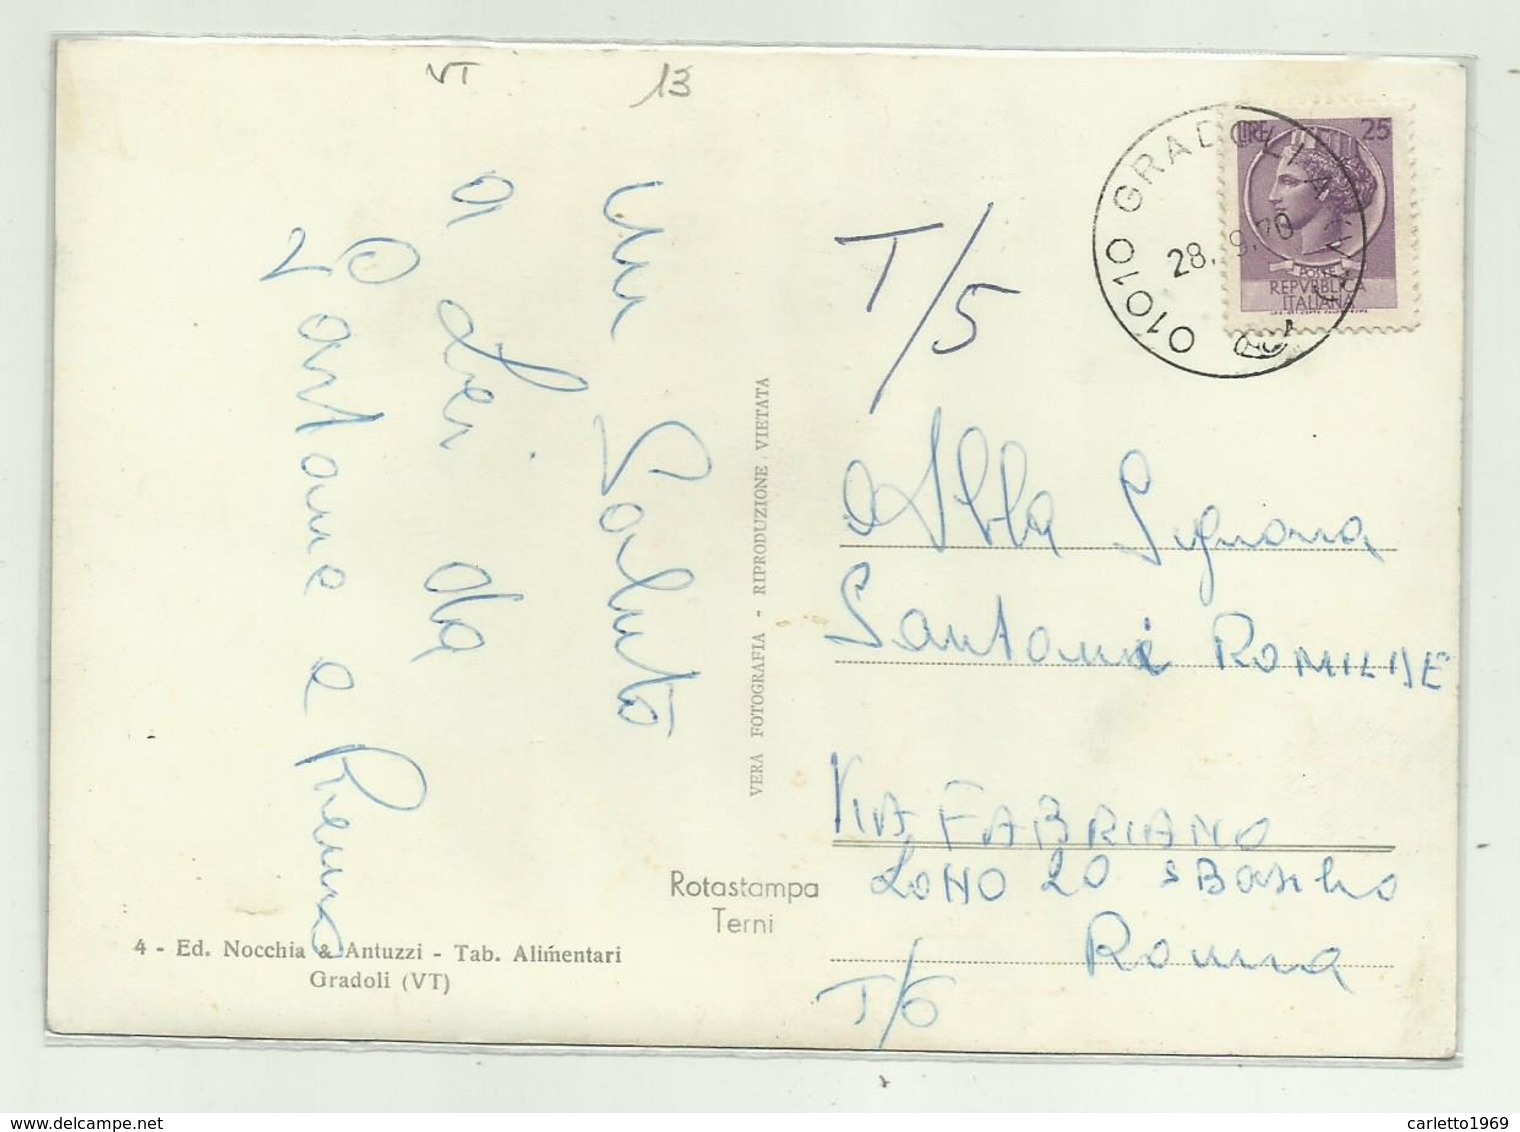 VT
13
un Saluto
a Lei da
Santame e Remo
4 - Ed. Nocchia & Antuzzi - Tab. Alimentari
Gradoli (VT)
VERA FOTOGRAFIA - RIPRODUZIONE VIETATA
Rotastampa
Terni
01010 GRADOLI
28.9.70
LIRE 25
POSTE
REPVBBLICA
ITALIANA
T/5
Alla Signora
Santame ROMILDE
VIA FABRIANO
20
Roma
T/6
delcampe.net
carletto1969